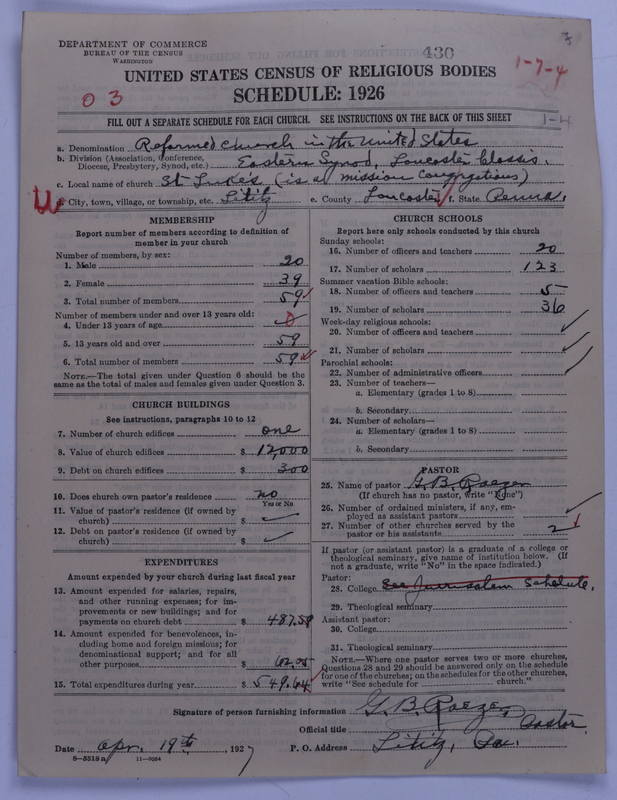 DEPARTMENT OF COMMERCE
BUREAU OF THE CENSUS
WASHINGTON
430
1-7-4
UNITED STATES CENSUS OF RELIGIOUS BODIES
SCHEDULE: 1926
0 3
FILL OUT A SEPARATE SCHEDULE FOR EACH CHURCH. SEE INSTRUCTIONS ON THE BACK OF THIS SHEET
1-4
a. Denomination Reformed Church in the United States
b. Division (Association, Conference, Diocese, Presbytery, Synod, etc.) Eastern Synod, Lancaster Classis.
c. Local name of church St Luke's (is a mission congregations)
d. City, town, village, or township, etc. Lititz e. County Lancaster f. State Penna.
MEMBERSHIP
Report number of members according to definition of
member in your church
Number of members, by sex:
1. Male 20
2. Female 39
3. Total number of members 59
Number of members under and over 13 years old:
4. Under 13 years of age 0
5. 13 years old and over 59
6. Total number of members 59
NOTE.—The total given under Question 6 should be the
same as the total of males and females given under Question 3.
CHURCH BUILDINGS
See instructions, paragraphs 10 to 12
7. Number of church edifices one
8. Value of church edifices $ 12,000
9. Debt on church edifices $ 300
10. Does church own pastor's residence no
Yes or No
11. Value of pastor's residence (if owned by
church) $
12. Debt on pastor's residence (if owned by
church) $
EXPENDITURES
Amount expended by your church during last fiscal year
13. Amount expended for salaries, repairs,
and other running expenses; for im-
provements or new buildings; and for
payments on church debt $ 487.59
14. Amount expended for benevolences, in-
cluding home and foreign missions; for
denominational support; and for all
other purposes $ 62.05
15. Total expenditures during year $ 549.64
CHURCH SCHOOLS
Report here only schools conducted by this church
Sunday schools:
16. Number of officers and teachers 20
17. Number of scholars 123
Summer vacation Bible schools:
18. Number of officers and teachers 5
19. Number of scholars 36
Week-day religious schools:
20. Number of officers and teachers
21. Number of scholars
Parochial schools:
22. Number of administrative officers
23. Number of teachers—
a. Elementary (grades 1 to 8)
b. Secondary
24. Number of scholars—
a. Elementary (grades 1 to 8)
b. Secondary
PASTOR
25. Name of pastor G. B. Raezer
(If church has no pastor, write "None")
26. Number of ordained ministers, if any, em-
ployed as assistant pastors
27. Number of other churches served by the
pastor or his assistants 2
If pastor (or assistant pastor) is a graduate of a college or
theological seminary, give name of institution below. (If
not a graduate, write "No" in the space indicated.)
Pastor:
28. College See Jerusalem Schedule.
29. Theological seminary
Assistant pastor:
30. College
31. Theological seminary
NOTE.—Where one pastor serves two or more churches,
Questions 28 and 29 should be answered only on the schedule
for one of the churches; on the schedules for the other churches,
write "See schedule for church."
Signature of person furnishing information G. B. Raezer,
Official title Pastor
Date Apr. 19th, 1927 P. O. Address Lititz, Pa.
8-5318a 11-9064